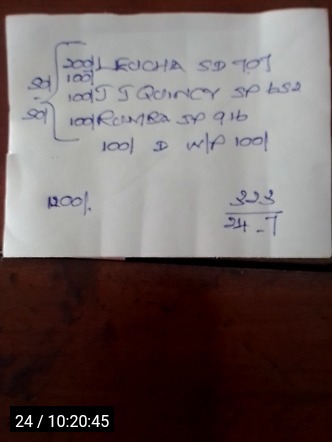 200/ LEUCHA SD 707
100/
100/ J J QUINCY SP 652
100/ RUMBA SP 916
100/ D W/P 100/
1200/.
323
24-7
24 / 10:20:45